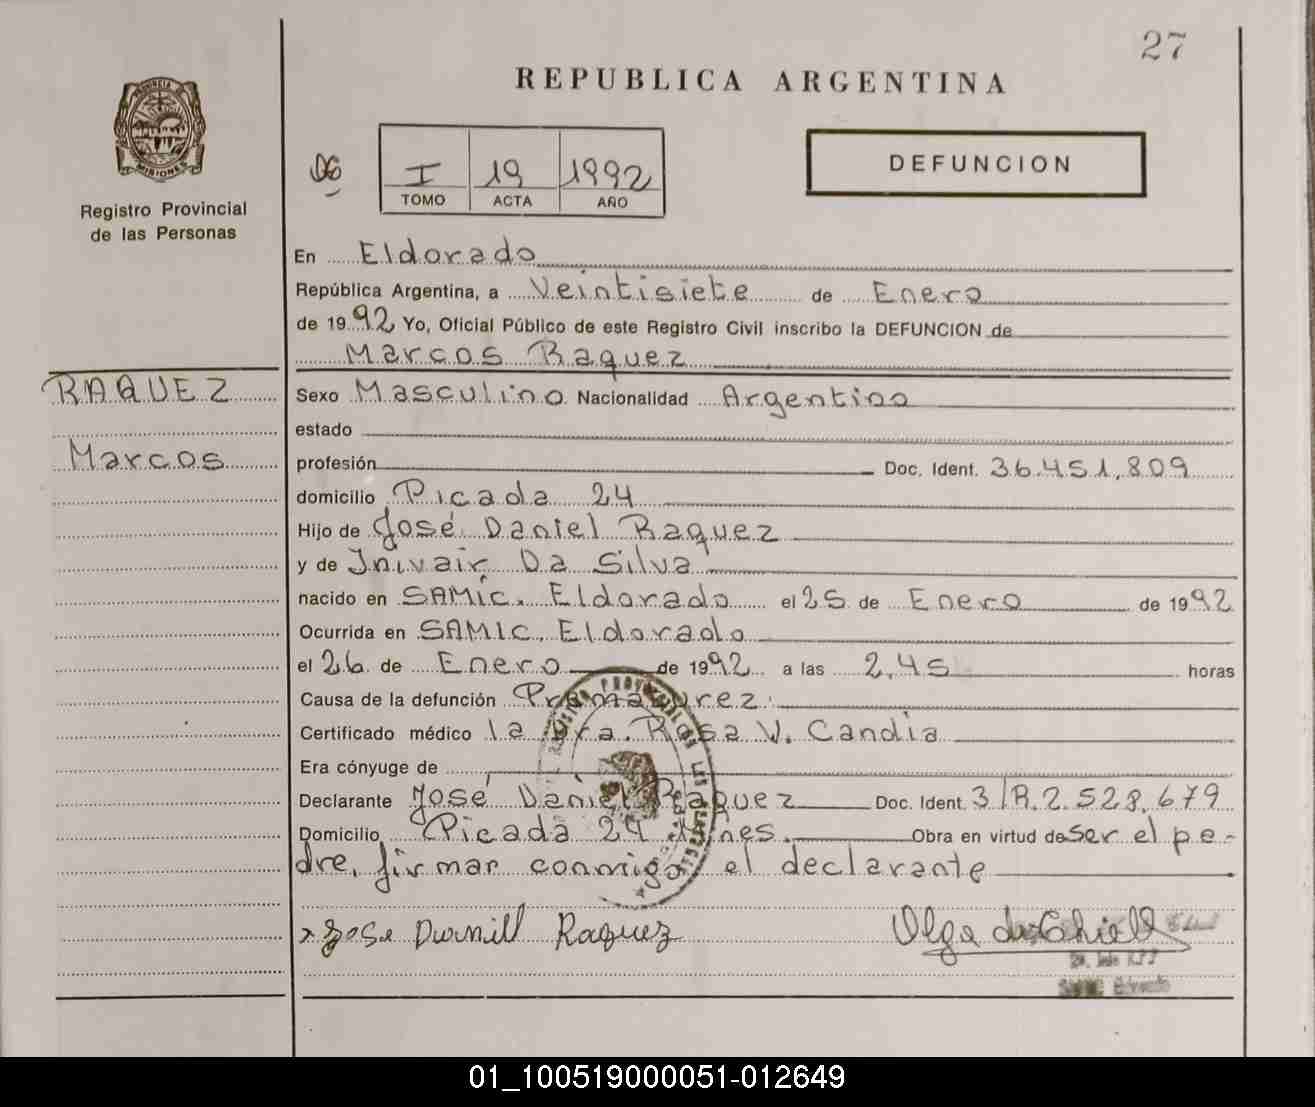 27
REPUBLICA ARGENTINA
PROVINCIA DE MISIONES
Registro Provincial
de las Personas
I 19 1992
TOMO ACTA AÑO
DEFUNCION
En Eldorado
República Argentina, a Veintisiete de Enero
de 1992 Yo, Oficial Público de este Registro Civil inscribo la DEFUNCION de
Marcos Raquez
RAQUEZ
Marcos
Sexo Masculino Nacionalidad Argentino
estado
profesión Doc. Ident. 36.451.809
domicilio Picada 24
Hijo de José Daniel Raquez
y de Inivair Da Silva
nacido en SAMIC. Eldorado el 25 de Enero de 1992
Ocurrida en SAMIC. Eldorado
el 26 de Enero de 1992 a las 2,45 horas
Causa de la defunción Prematurez
Certificado médico la Dra. Rosa V. Candia
Era cónyuge de
Declarante José Daniel Raquez Doc. Ident. 3/R.2.528.679
Domicilio Picada 24 Mnes. Obra en virtud de ser el pa-
dre, firmar conmigo el declarante
x Jose Daniell Raquez
01_100519000051-012649